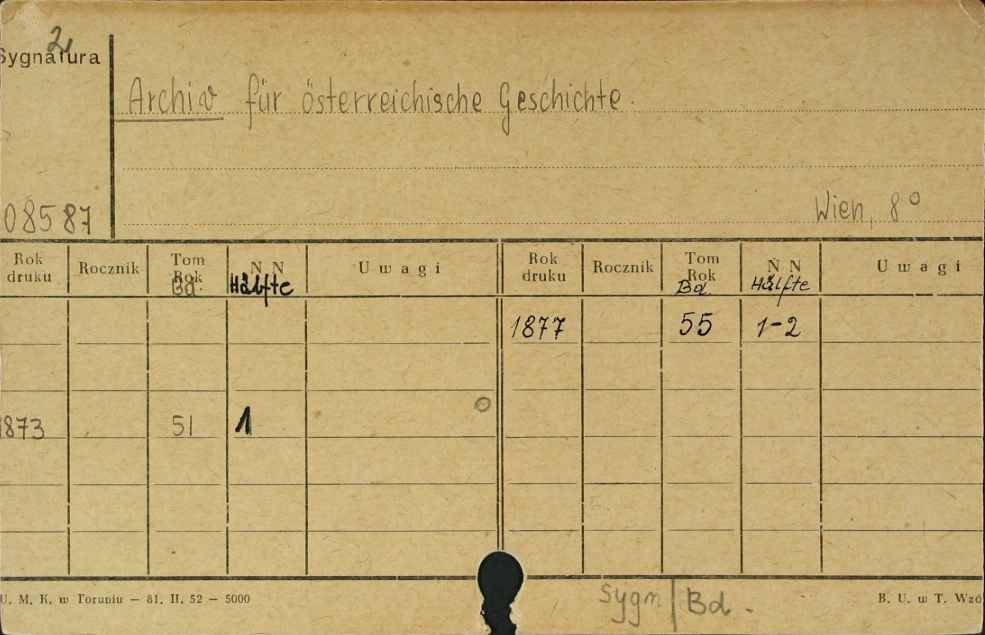 2
Sygnatura
Archiv für österreichische Geschichte.
08587
Wien, 8°
Rok druku Rocznik Tom Rok Bd. N N Hälfte Uwagi Rok druku Rocznik Tom Rok Bd. N N Hälfte Uwagi
1877 55 1-2
1873 51 1
U. M. K. w Toruniu — 81. II. 52 — 5000
Sygn Bd.
B. U. w T. Wzó